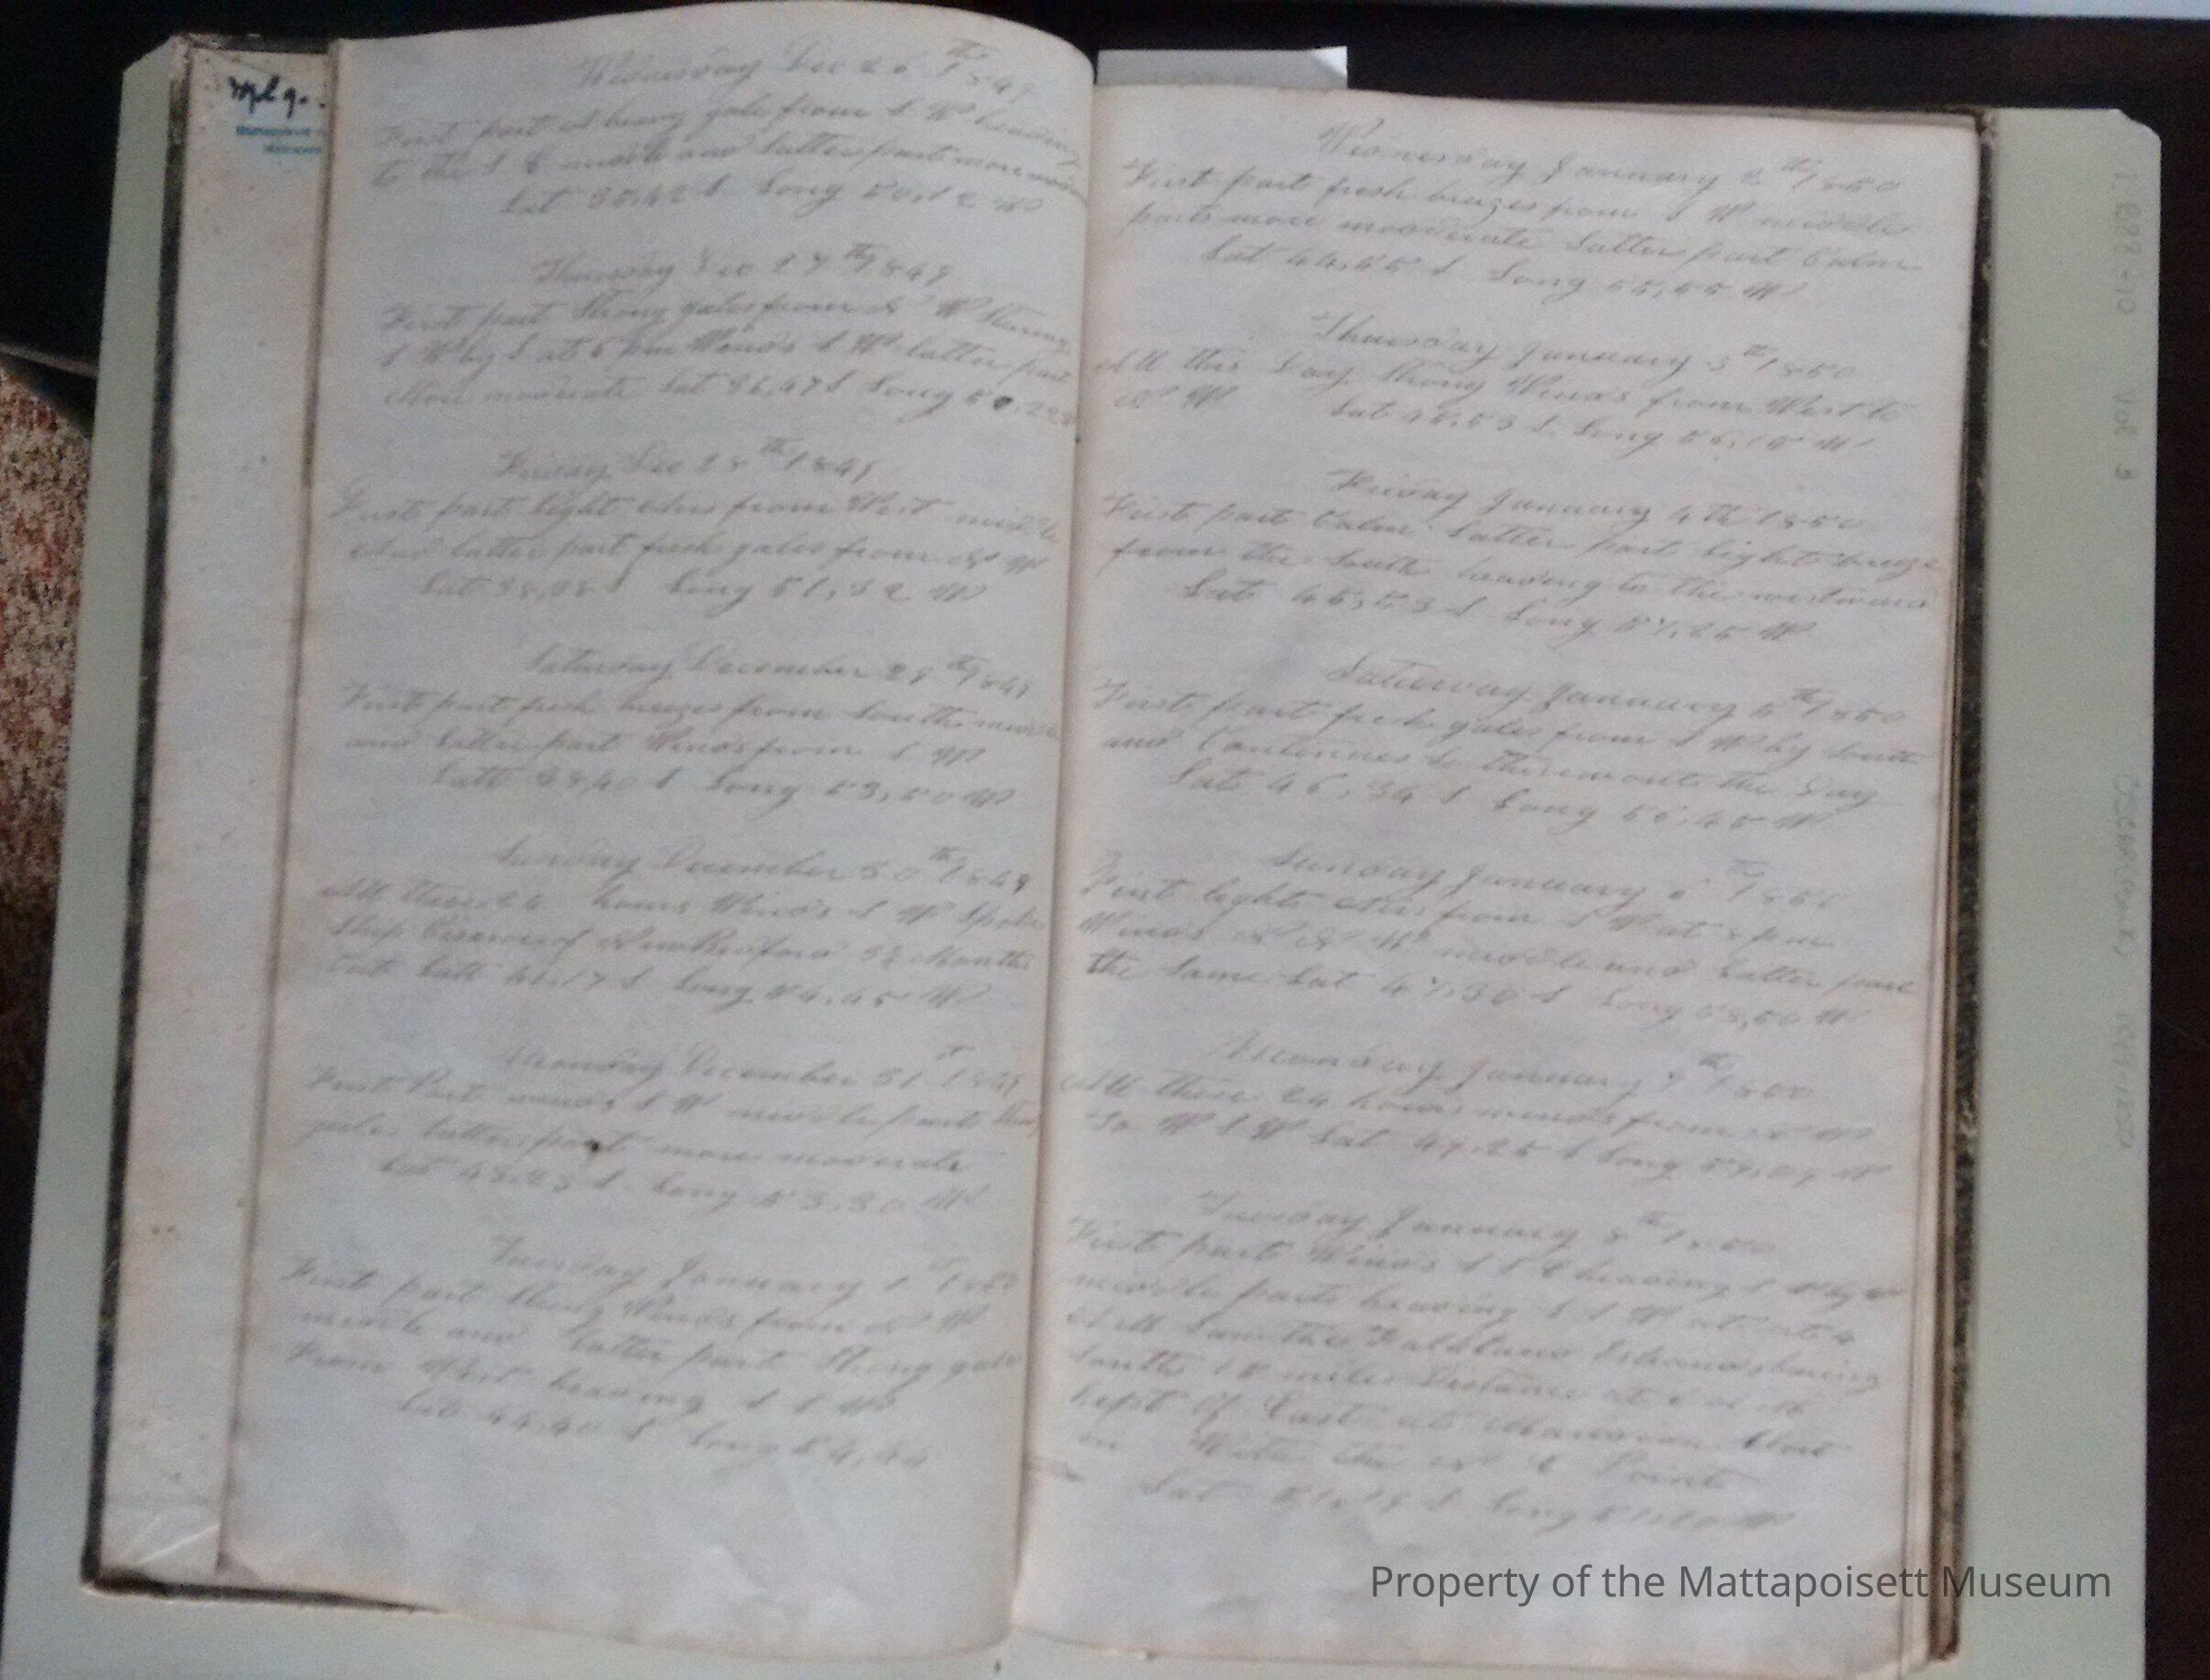 Wednesday Dec 26th 1849
First part A heavy gale from S W heading
to the S E middle and Latter part more
Lat 35,42 S Long 50,12 W
Thursday Dec 27th 1849
First part Strong gales from N W Steering
S W by S at 6 pm Winds S W latter part
More moderate Lat 36,47 S Long
Friday Dec 28th 1849
First part light Airs from West middle
And latter part fresh gales from N W
Lat 38,08 S Long 51,32 W
Saturday December 29th 1849
First part fresh breezes from South middle
and Latter part Winds from S W
Latt S Long 53,50 W
Sunday December 30th 1849
All these 24 hours Winds S W Spoke
Ship of New Bedford Months
Out Latt 41,17 S Long 54,45 W
Monday December 31st 1849
First Part winds S W middle parts Strong
gales latter part more moderate
Lat 43,23 S Long 53,30 W
Tuesday January 1st 1850
First part Strong Winds from N W
middle and latter part Strong gales
From West heading S S W
Lat 44,40 S Long 54,44
Wednesday January 2th 1850
First part fresh breezes from S W middle
parts more moderate Latter part Calm
Lat 44,55 S Long 55,55 W
Thursday January 3th 1850
All this Day Strong Winds from West to
N W Lat 45,53 S Long 56,15 W
Friday January 4th 1850
First part Calm Latter part light breeze
from the South heading to the westward
Lat 45,53 S Long 57,25 W
Saturday January 5th 1850
First part fresh gales from S W by South
and Continues so the day
Lat 46,34 S Long 56,45 W
Sunday January 6th 1850
First light Airs from S W at 8 pm
Winds N N W middle and Latter part
the Same Lat 47,30 S Long 58,50 W
Monday January 7th 1850
All these 24 hours winds from N W
To W S W Lat 49,25 S Long 59,09 W
Tuesday January 8th 1850
First part Winds S S E heading S W by W
middle parts heading S S W at at 4
A M Saw the Falkland Islands bearing
South 18 miles Distance at 6 A M
kept Of East at Meridian Close
in With the N E Point
Lat 51,19 S Long W
Mpl q.
1.888-10 Vol 3
1849-1850
Property of the Mattapoisett Museum